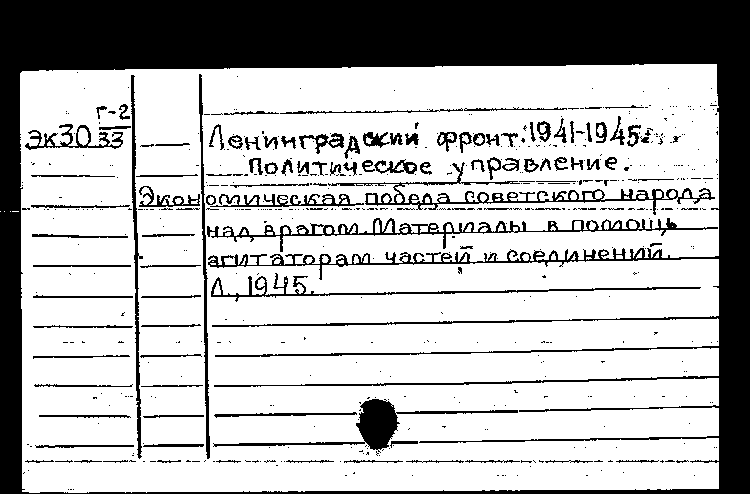 Эк30 Г-2/33
Ленинградский фронт. 1941-1945г.
Политическое управление.
Экономическая победа советского народа
над врагом. Материалы в помощь
агитаторам частей и соединений.
Л., 1945.